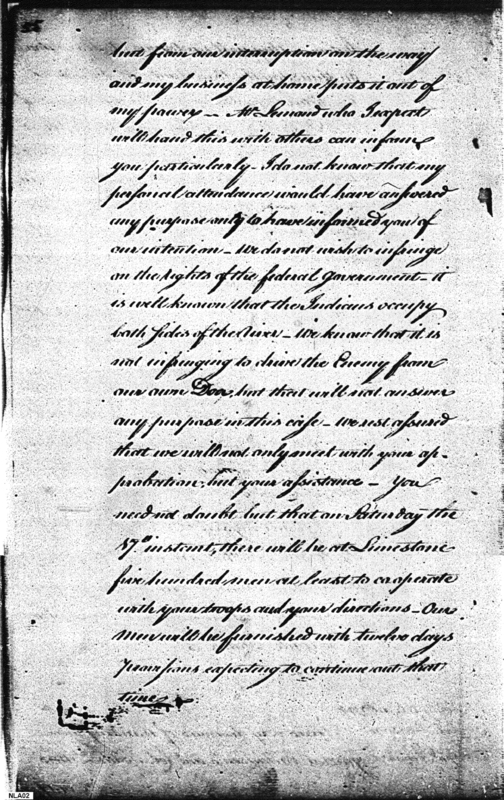 but from our interruption on the way
and my business at home puts it out of
my power — Mr Lemond who I expect
will hand this with others can inform
you particularly - I do not know that my
personal attendance would have answered
any purpose only to have informed you of
our intention — We do not wish to infringe
on the rights of the federal Government - it
is well known that the Indians occupy
both sides of the River — We know that it is
not infringing to drive the Enemy from
our own Door, but that will not answer
any purpose in this case — We rest assured
that we will not only meet with your ap-
probation, but your assistance — You
need not doubt but that on Saturday the
instant, there will be at Limestone
five hundred men at least to cooperate
with your troops and your directions — Our
Men will be furnished with twelve days
provisions expecting to continue out that
time
NLA02